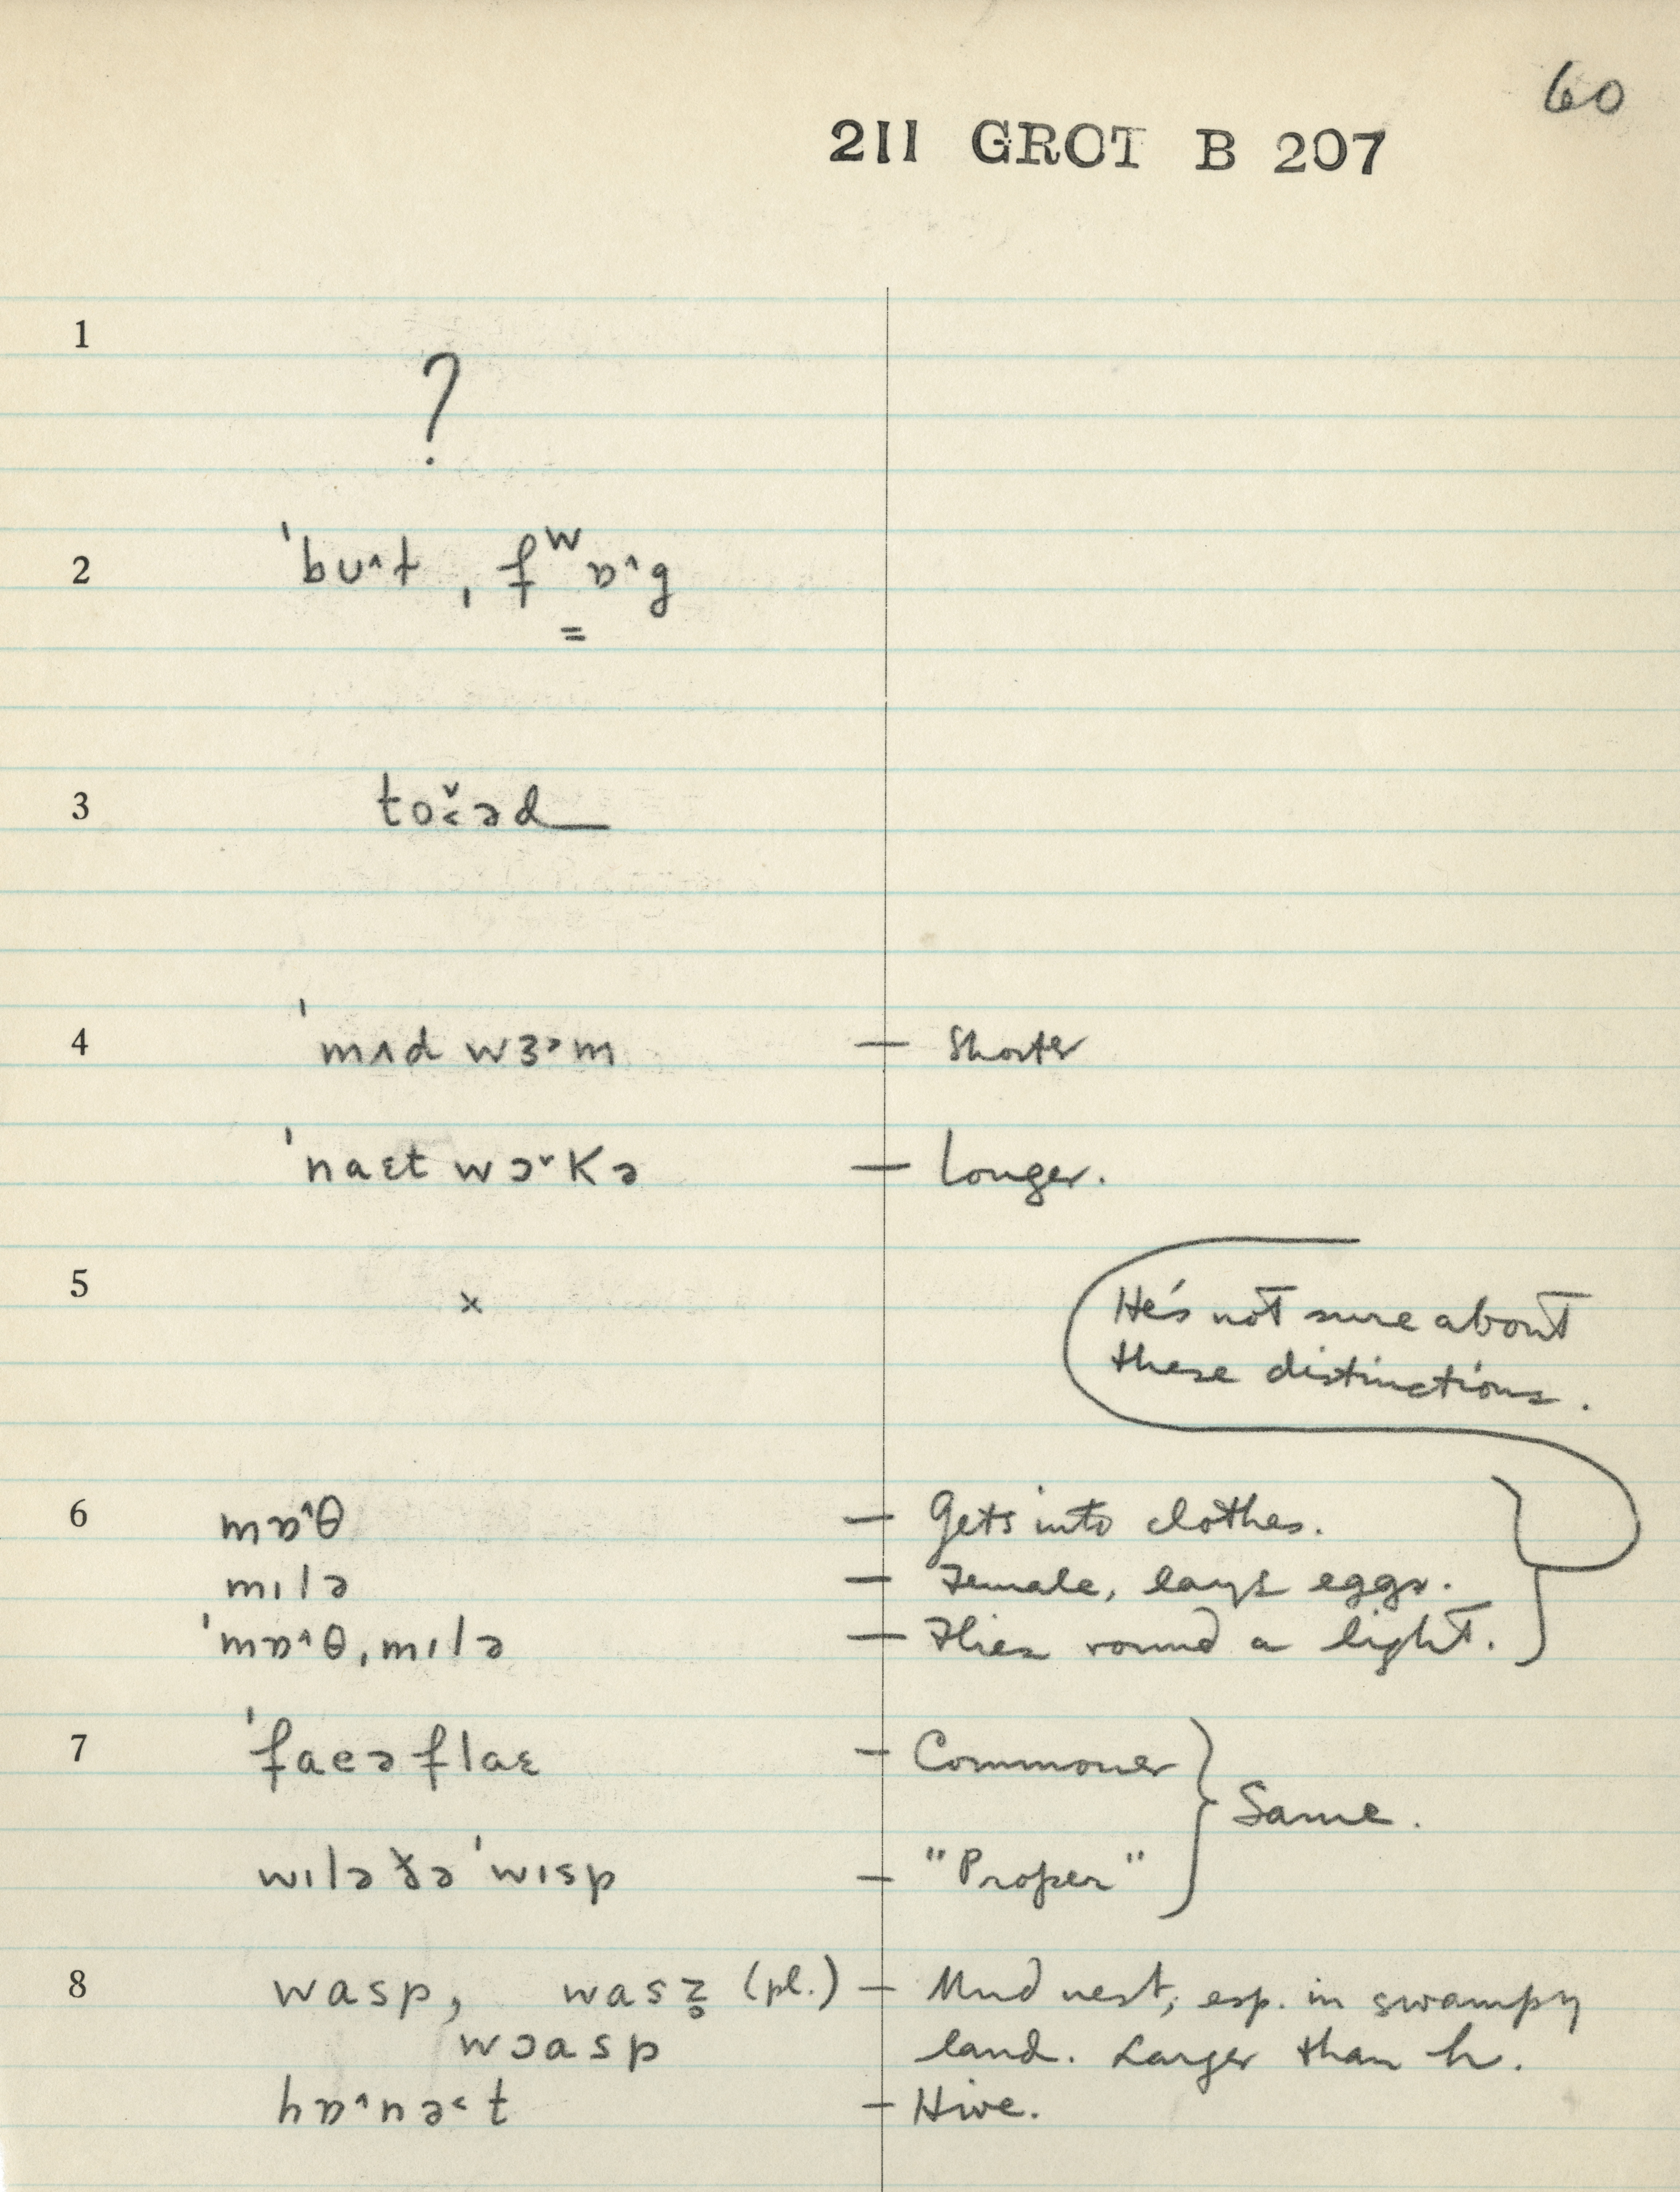 60
211 GROT B 207
1
?
2 ˈbʊ˄t , ˌfʷɒ˄g
=
3 to˅˂əd
4 ˈmʌd wɜ˒m — Shorter
ˈnaɛt wɔ˅kə — Longer.
5 ×
He's not sure about
these distinctions.
6 mɒ˄θ — Gets into clothes.
mɪlə — Female, lays eggs.
ˈmɒ˄θˌmɪlə — Flies round a light.
7 ˈfaeəflaɛ — Commoner
Same.
wɪlə ðə ˈwɪsp — "Proper"
8 wasp, was (pl.) — Mud nest, esp. in swampy
wɔasp land. Larger than h.
hɒ˄nə˂t — Hive.